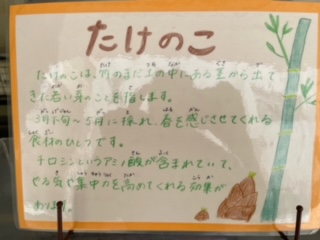 たけのこ
たけのこは、竹のまだ土の中にある茎から出て
きた若い芽のことを指します。
3月下旬〜5月に採れ、春を感じさせてくれる
食材のひとつです。
チロシンというアミノ酸が含まれていて、
やる気や集中力を高めてくれる効果が
あります。